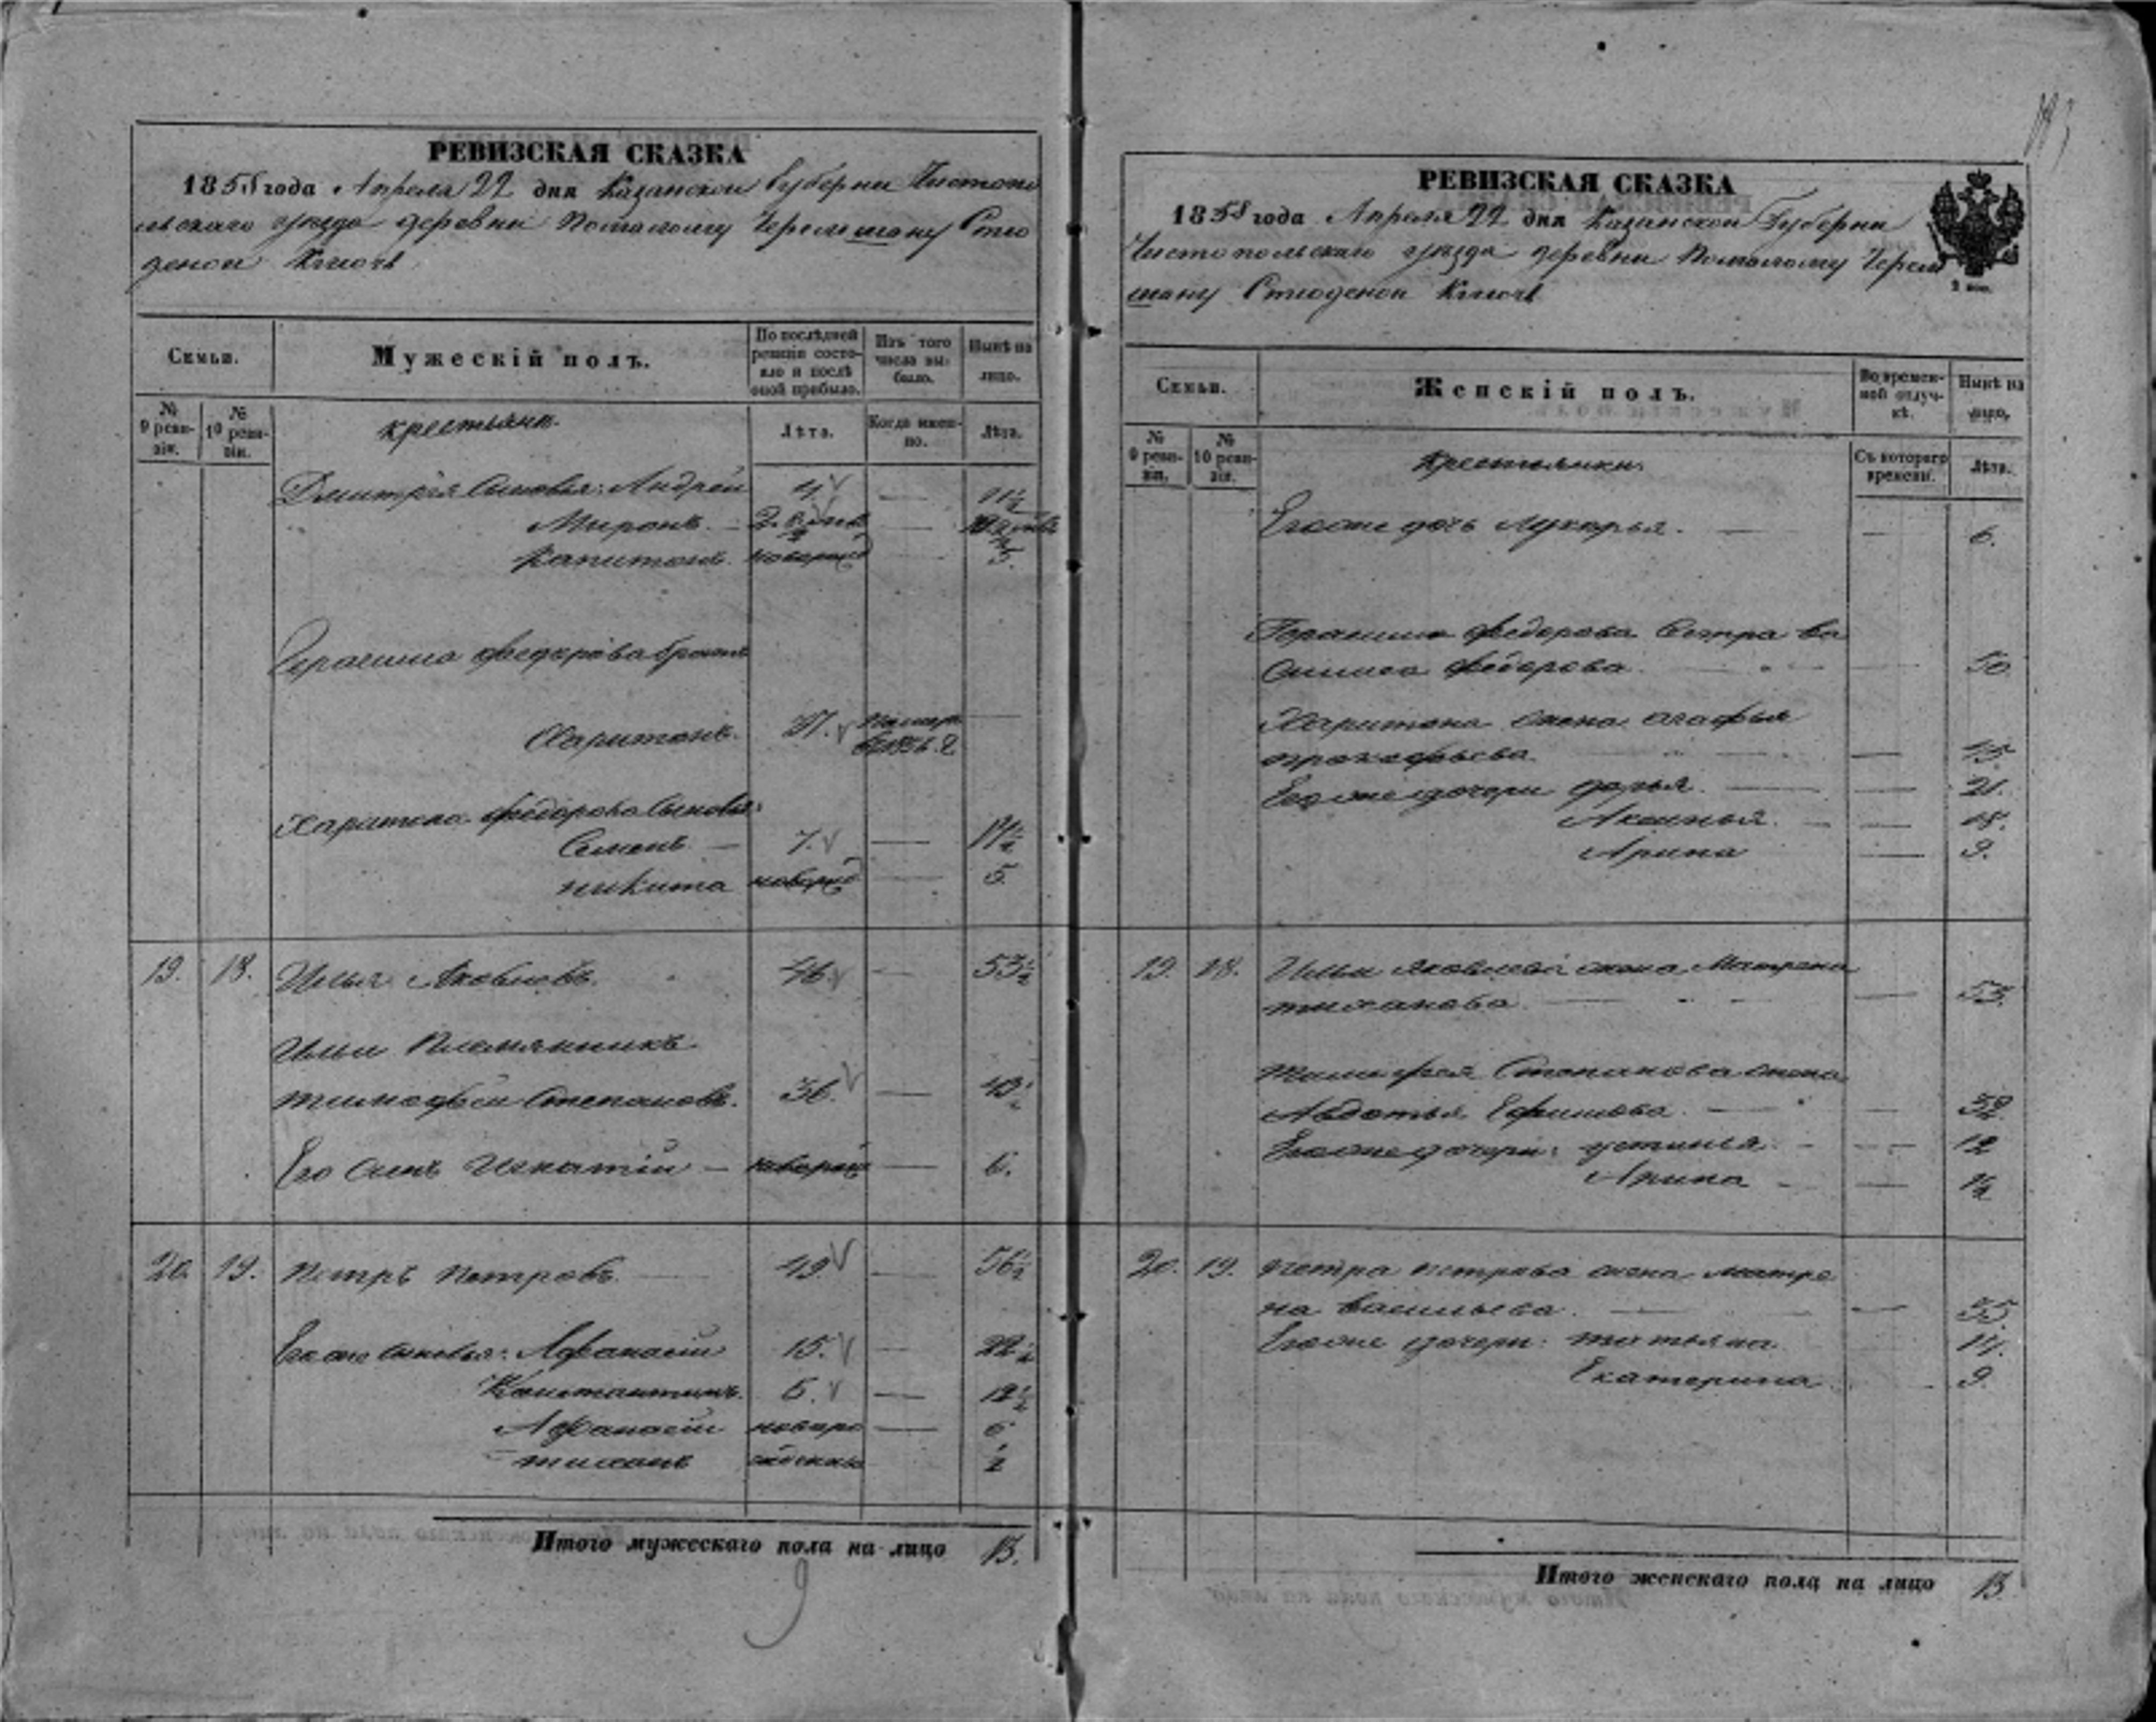 РЕВИЗСКАЯ СКАЗКА
1858 года Апреля 22 дня Казанской Губернии Чистопо
льскаго уезда деревни Помалому Черемшану Сту
деной Ключь
Семьи.
Мужескій полъ.
По послѣдней ревизіи состояло и послѣ оной прибыло.
Изъ того числа выбыло.
Нынѣ на лицо.
№ 9 ревизіи.
№ 10 ревизіи.
крестьяне.
Лѣта.
Когда именно.
Лѣта.
Дмитрія Сыновья: Андрей 4 — 11½
Миронъ. —
Капитонъ. новорож — 5.
Герасима Федорова братъ
Харитонъ. Померъ
Харитона Федорова Сыновья:
Семенъ — 7. — 14½
никита новорож — 5
19. 18. Илья Яковлевъ. 46. — 53½
Ильи Племянникъ
тимофей Степановъ. 36. — 43½
Его Сынъ Игнатій — новорож — 6.
20 19. Петръ Петровъ. — 49 — 56½
Егоже сыновья: Афанасій 15. — 22½
Константинъ. 5. — 12½
Афанасій новоро — 6
тихонъ жденны ½
Итого мужескаго пола на лицо 13.
9
РЕВИЗСКАЯ СКАЗКА
1858 года Апреля 22 дня Казанской Губернии
Чистопольскаго уезда деревни Помалому Черем
шану Студеной Ключь
2 коп.
Семьи.
Женскій полъ.
Во временной отлучкѣ.
Нынѣ на лицо.
№ 9 ревизіи.
№ 10 ревизіи.
Крестьянки.
Съ котораго времени.
Лѣта.
Егоже дочь Лукерья. — — 6.
Герасима Федорова Сестра Ва
силиса Федорова. — — 50
Харитона жена агафья
прокофьева. — — 45.
Егоже дочери дарья. — — 21.
Аксинья. — — 18.
Арина — 9.
19. 18. Ильи Яковлева жена Матрена
тиханова — — 53.
Тимофея Степанова жена
Авдотья Ефимова. — — 39
Егоже дочери: устинья. — — 12
Арина — — ½
20. 19. Петра петрова жена Матре
на васильева. — — 55.
Егоже дочери: татьяна. 14.
Екатерина. 9.
Итого женскаго пола на лицо 13